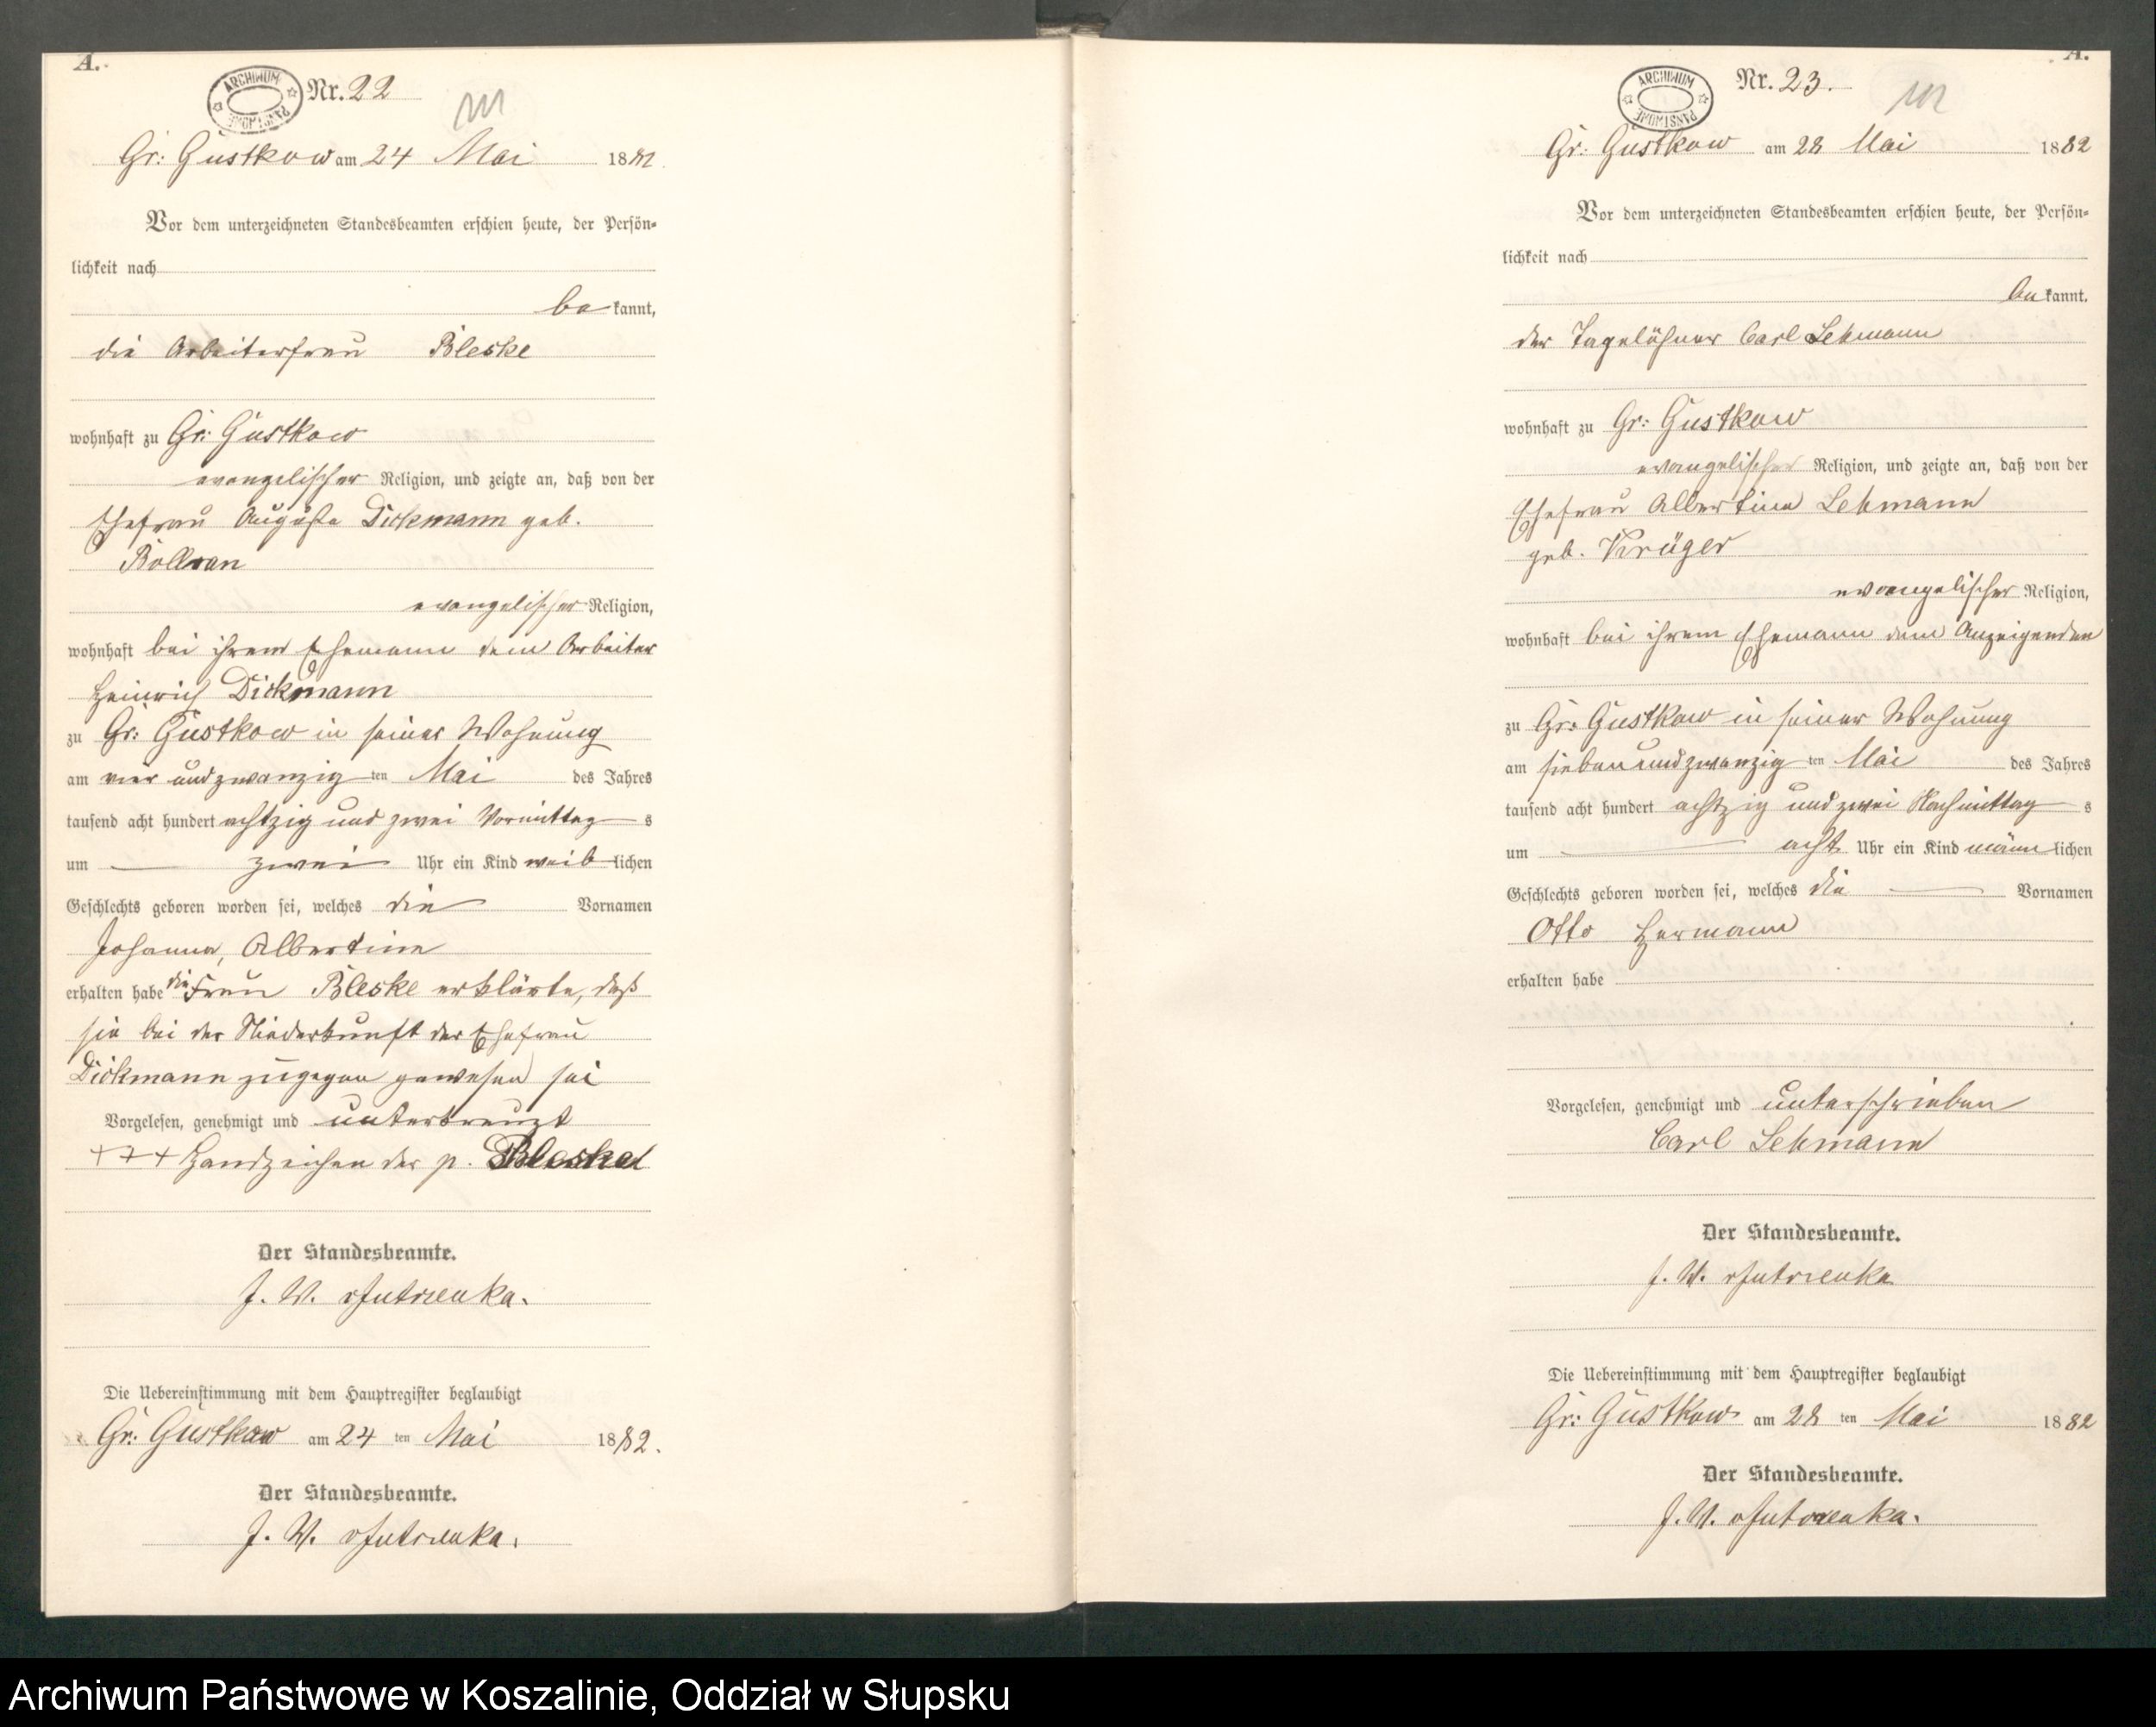 A.
ARCHIWUM PAŃSTWOWE
Nr. 22
Gr: Gustkow am 24 Mai 1882
Vor dem unterzeichneten Standesbeamten erschien heute, der Persön=
lichkeit nach
be kannt,
die Arbeiterfrau Bleske
wohnhaft zu Gr: Gustkow
evangelischer Religion, und zeigte an, daß von der
Ehefrau Auguste Dickmann geb.
evangelischer Religion,
wohnhaft bei ihrem Ehemann dem Arbeiter
Heinrich Dickmann
zu Gr: Gustkow in seiner Wohnung
am vier und zwanzig ten Mai des Jahres
tausend acht hundert achtzig und zwei Vormittag s
um zwei Uhr ein Kind weib lichen
Geschlechts geboren worden sei, welches die Vornamen
Johanna, Albertine
erhalten habe die Frau Bleske erklärte, daß
sie bei der Niederkunft der Ehefrau
Dickmann zugegen gewesen sei
Vorgelesen, genehmigt und unterkreuzt
+++ Handzeichen der p. Bleske
Der Standesbeamte.
J. W.
Die Uebereinstimmung mit dem Hauptregister beglaubigt
Gr: Gustkow am 24 ten Mai 1882.
Der Standesbeamte.
J. W.
A.
ARCHIWUM PAŃSTWOWE
Nr. 23.
Gr: Gustkow am 28 Mai 1882
Vor dem unterzeichneten Standesbeamten erschien heute, der Persön=
lichkeit nach
be kannt.
der Tagelöhner Carl Lehmann
wohnhaft zu Gr: Gustkow
evangelischer Religion, und zeigte an, daß von der
Ehefrau Albertine Lehmann
geb. Krüger
evangelischer Religion,
wohnhaft bei ihrem Ehemann dem Anzeigenden
zu Gr: Gustkow in seiner Wohnung
am sieben und zwanzig ten Mai des Jahres
tausend acht hundert achtzig und zwei Nachmittag s
um acht Uhr ein Kind männ lichen
Geschlechts geboren worden sei, welches die Vornamen
Otto Hermann
erhalten habe
Vorgelesen, genehmigt und unterschrieben
Carl Lehmann
Der Standesbeamte.
J. W.
Die Uebereinstimmung mit dem Hauptregister beglaubigt
Gr: Gustkow am 28 ten Mai 1882
Der Standesbeamte.
J. W.
Archiwum Państwowe w Koszalinie, Oddział w Słupsku